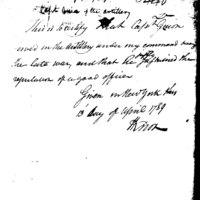 Capt of the artillery
This is to certify that Capt
served in the artillery under my command through
the late war, and that he sustained the
reputation of a good officer
Given in New York this
13 day of April 1789
HKnox